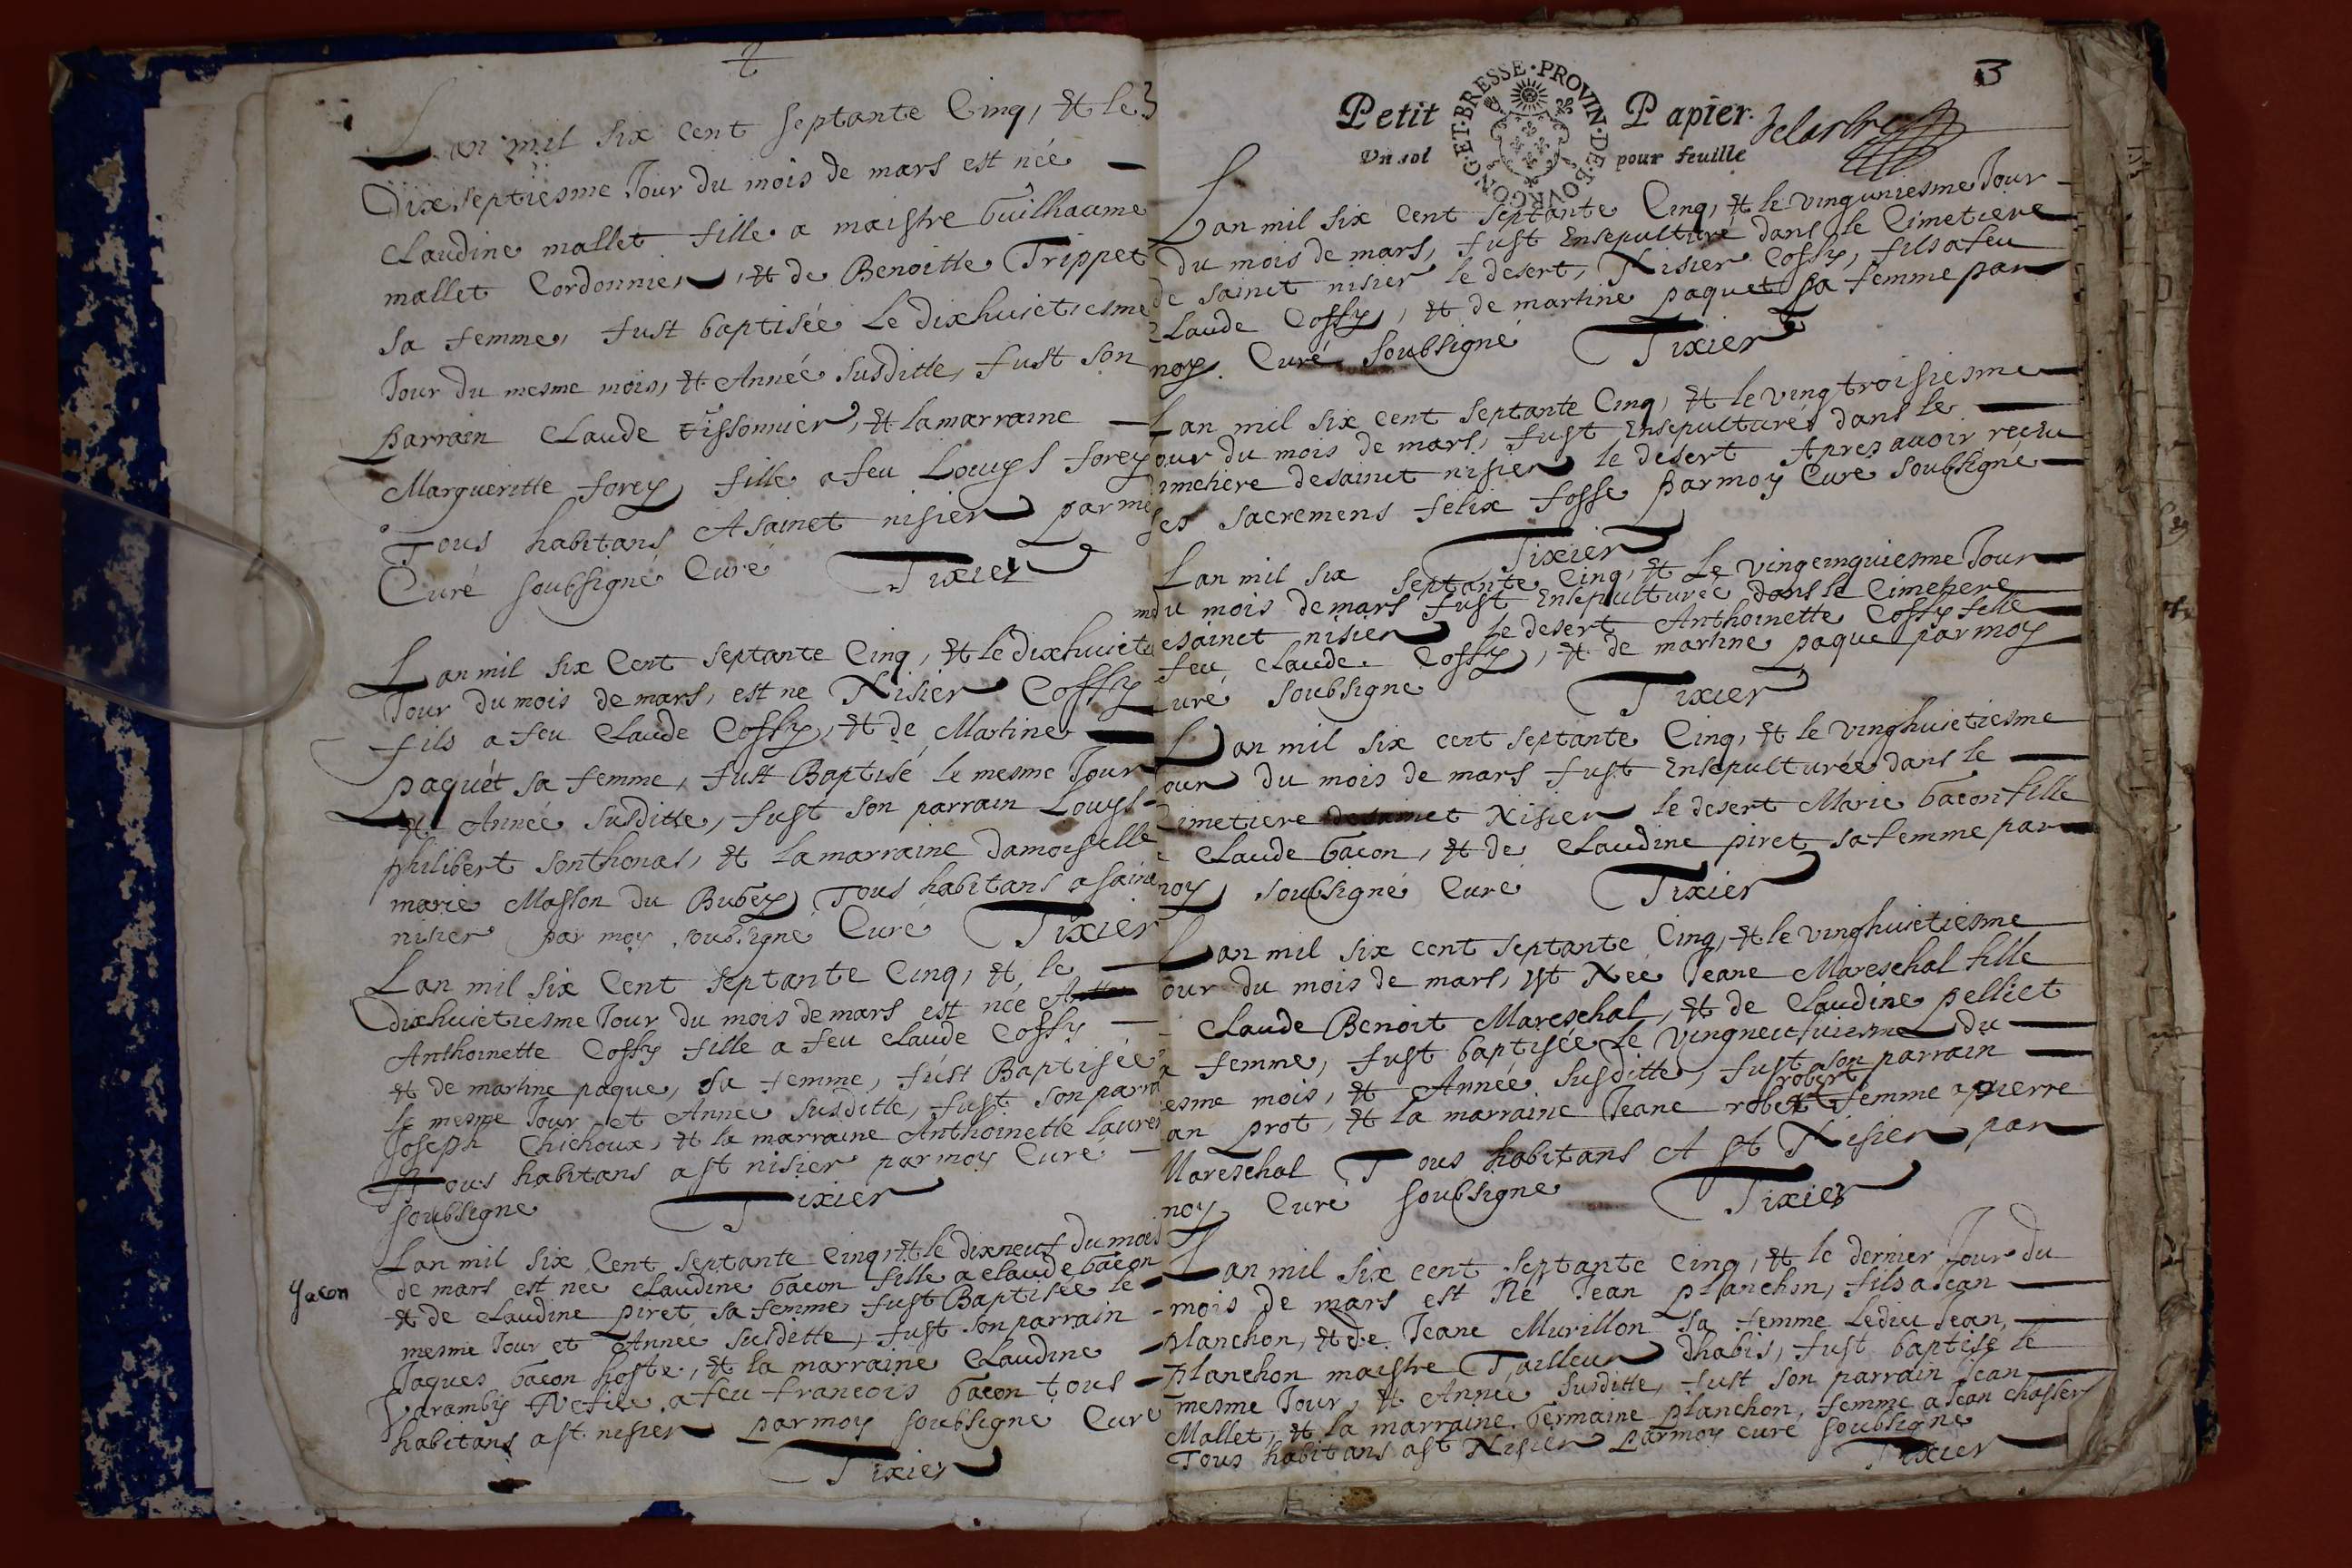 Lan mil six cent septante Cinq, et le
Dixseptiesme Jour du mois de mars est née
Claudine mallet fille a maistre Guilhaume
mallet Cordonnier, et de Benoitte Trippet
sa femme, fust baptisée Le dixhuictiesme
Jour du mesme mois, et Année susditte, fust son
parrain Claude Tissonnier, et la marraine
Margueritte forey, fille a feu Louys forey
Tous habitans A sainct nisier par moy
Curé soubsigné Curé Tixier
Lan mil six Cent septante Cinq, et le dixhuict
Jour du mois de mars, est ne Nisier Cossy
fils a feu Claude Cossy, et de Martine
paquet sa femme, fust Baptisé le mesme Jour
et Année susditte, fust son parrain Louys
philibert sonthonas, et la marraine damoiselle
marie Masson du Bubey Tous habitans a sainct
nisier par moy soubsigné Curé Tixier
Lan mil six Cent septante Cinq, et le
dixhuictiesme Jour du mois de mars est née
Anthoinette Cossy fille a feu Claude Cossy
et de martine paque, sa femme, fust Baptisée
le mesme Jour et Année susditte, fust son parra
Joseph Chichoux, et la marraine Anthoinette lauren
Tous habitans a st nisier par moy Curé
soubsigne Tixier
Gacon
Lan mil six Cent septante Cinq, et le dixneuf du mois
de mars est née Claudine Gacon fille a claude Gacon
et de Claudine piret sa femme fust Baptisée le
mesme Jour et Année susditte, fust son parrain
Jaques Gacon hoste, et la marraine Claudine
a feu francois Gacon tous
habitans a st nisier par moy soubsigné Curé
Tixier
3
Petit Papier.
Un sol pour feuille
PROVIN·DE·BOVRGONG·ET·BRESSE
Lan mil six Cent septante Cinq, et le vinguniesme Jour
du mois de mars, fust Ensepulturé dans le Cimetiere
de sainct nisier le desert, Nisier Cossy, fils a feu
Claude Cossy, et de martine paquet sa femme par
moy. Curé soubsigné Tixier
Lan mil six cent septante Cinq, et le vingtroisiesme
our du mois de mars, fust Ensepulturé dans le
imetiere de sainct nisier le desert Apres auoir reçeu
ses sacremens felix fosse par moy Curé soubsigné
Tixier
Lan mil six septante Cinq, et Le vingcinquiesme Jour
du mois de mars fust Ensepulturée dans le Cimetiere
e sainct nisier le desert Anthoinette Cossy fille
feu claude Cossy, et de martine paque par moy
uré soubsigne Tixier
Lan mil six cent septante Cinq, et le vinghuictiesme
our du mois de mars fust Ensepulturée dans le
imetiere de sainct Nisier le desert Marie Gacon fille
Claude Gacon, et de Claudine piret sa femme par
moy soubsigné Curé Tixier
Lan mil six cent septante Cinq, et le vinghuictiesme
our du mois de mars, est Née Jeane Mareschal fille
Claude Benoit Mareschal, et de Claudine pelliet
a femme, fust baptisée le vingneufuiesme du
esme mois, et Année susditte, fust son parrain
an prot, et la marraine Jeane robert robert femme a pierre
Mareschal Tous habitans A st Nisier par
moy Curé soubsigne Tixier
Lan mil six cent septante Cinq, et le dernier Jour du
mois de mars est Né Jean planchon, fils a Jean
planchon, et de Jeane Murillon sa femme Ledict Jean,
planchon maistre Tailleur dhabis, fust baptisé le
mesme Jour, et Année susditte, fust son parrain Jean
Mallet, et la marraine Germaine planchon, femme a Jean
Tous habitans a st Nisier par moy curé soubsigné
Tixier